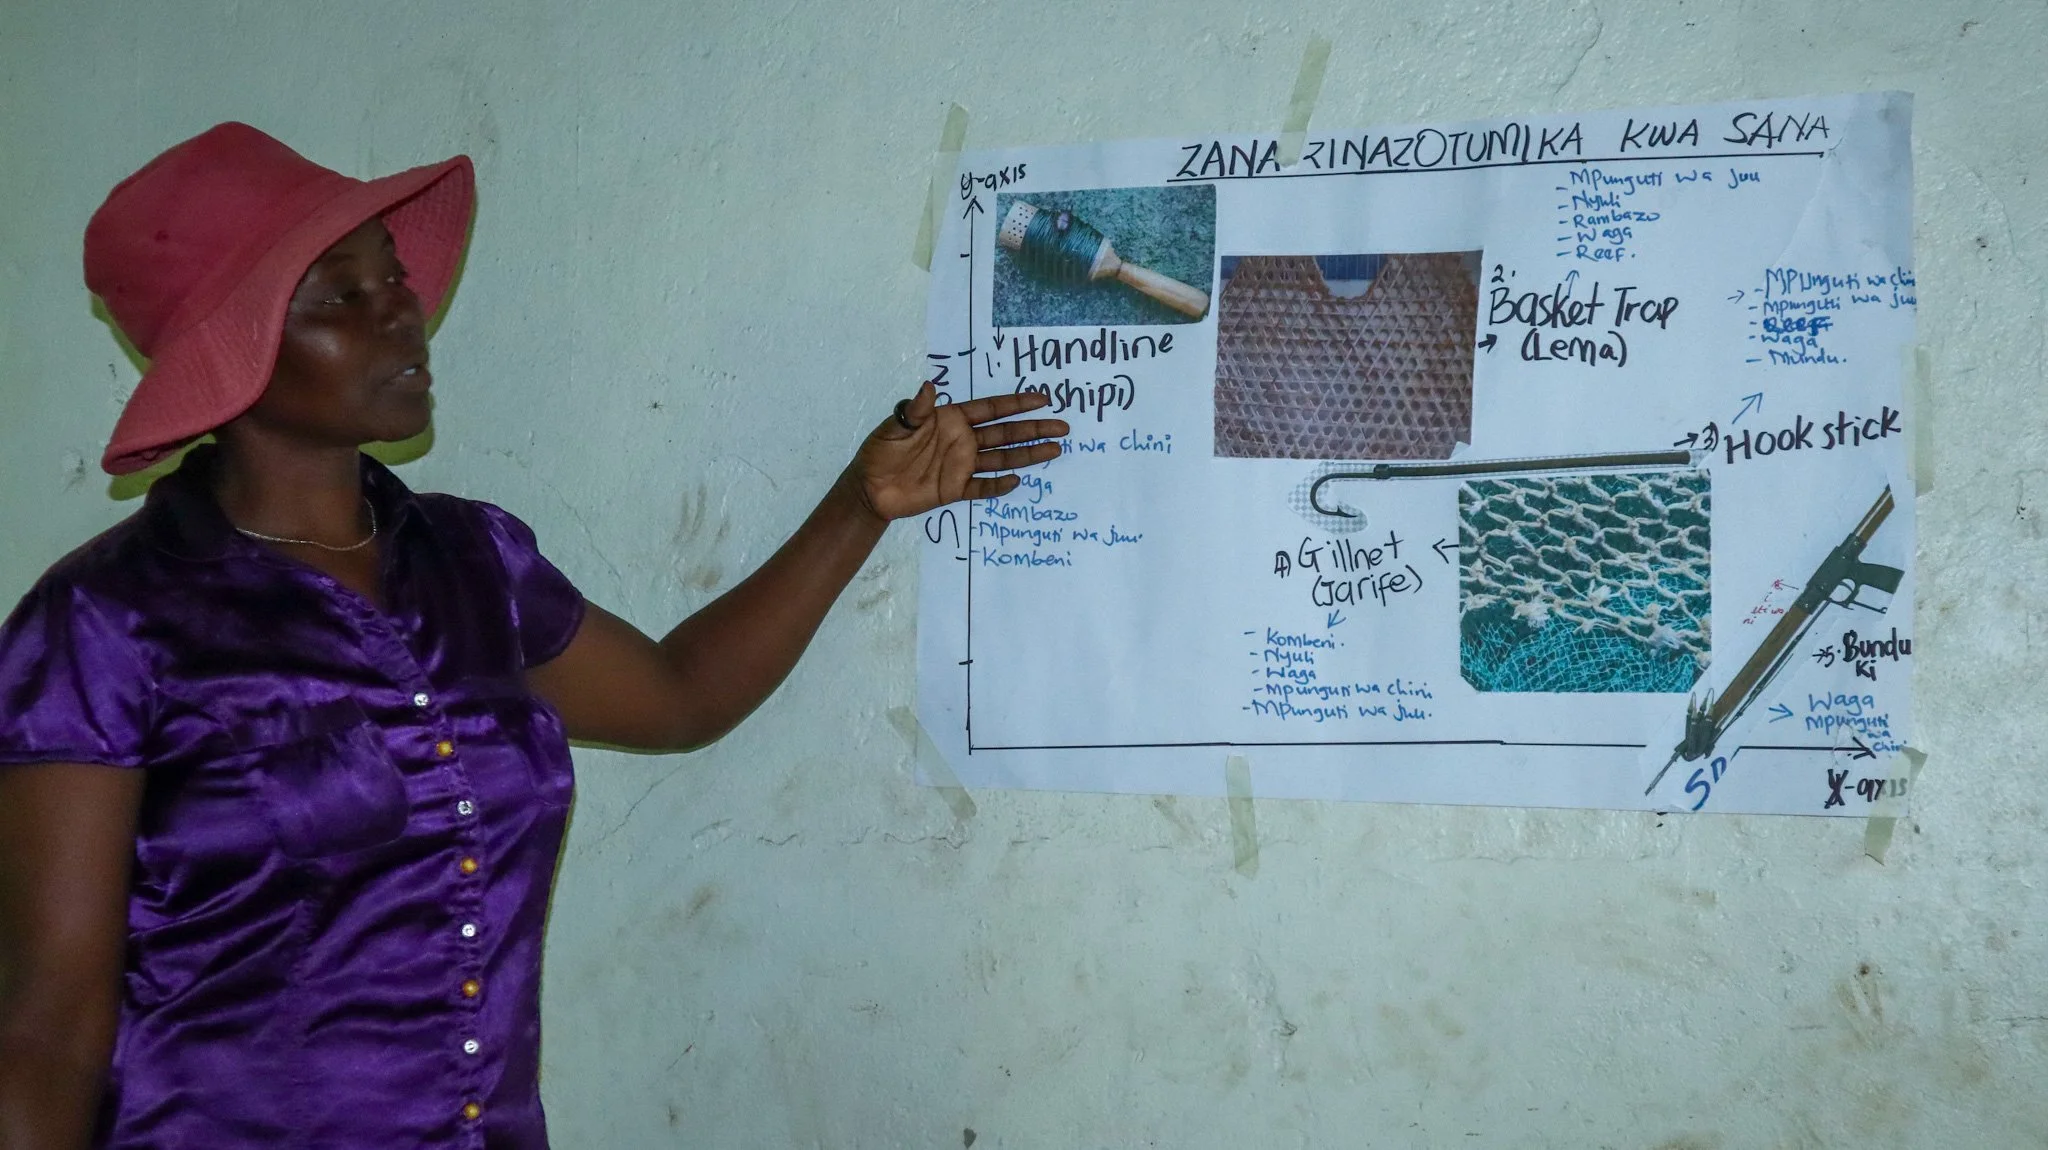 ZANA ZINAZOTUMIKA KWA SANA
y-axis
1. Handline
(mshipi)
wa chini
- Rambazo
- Mpunguti wa juu.
- Kombeni
- Mpunguti wa juu
- Nyuli
- Rambazo
- Waga
- Reef.
2.
Basket Trap
(Lema)
- Mpunguti wa chini
- Mpunguti wa juu
- Waga
- Mundu.
3) Hook stick
4) Gillnet
(Jarife)
- Kombeni.
- Nyuli
- Waga
- Mpunguti wa chini
- Mpunguti wa juu.
5. Bundu
ki
Waga
Mpunguti
wa
chini
X-axis